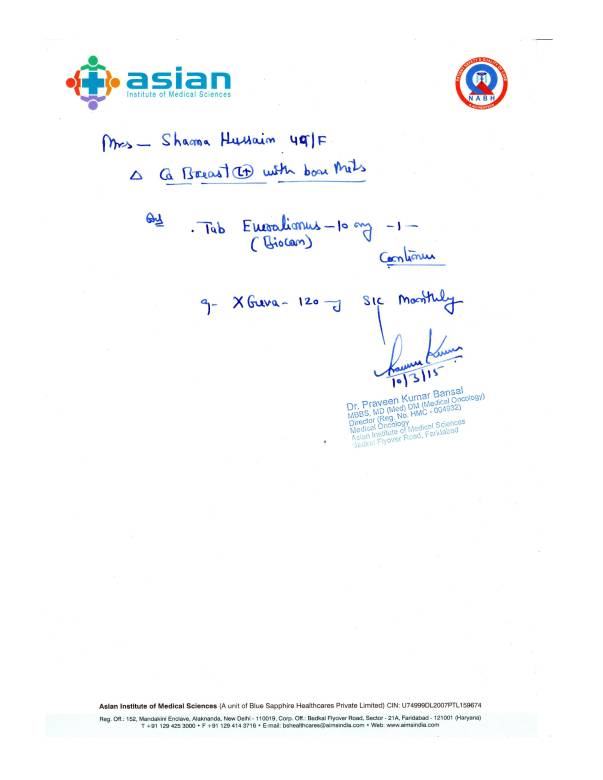 asian
Institute of Medical Sciences
PATIENT SAFETY & QUALITY OF CARE
NABH
Mrs - Shama Hussain 49/F
Δ Ca Breast (Lt) with bone Mets
Rx
. Tab Everolimus - 10 mg - 1 -
(Biocan)
Continue
XGeva - 120 mg S/C Monthly
10/3/15
Dr. Praveen Kumar Bansal
MBBS, MD (Med) DM (Medical Oncology)
Director (Reg. No. HMC - 004932)
Medical Oncology
Asian Institute of Medical Sciences
Badkal Flyover Road, Faridabad
Asian Institute of Medical Sciences (A unit of Blue Sapphire Healthcares Private Limited) CIN: U74999DL2007PTL159674
Reg. Off.: 152, Mandakini Enclave, Alaknanda, New Delhi - 110019, Corp. Off.: Badkal Flyover Road, Sector - 21A, Faridabad - 121001 (Haryana)
T +91 129 425 3000 • F +91 129 414 3716 • E-mail: bshealthcares@aimsindia.com • Web: www.aimsindia.com